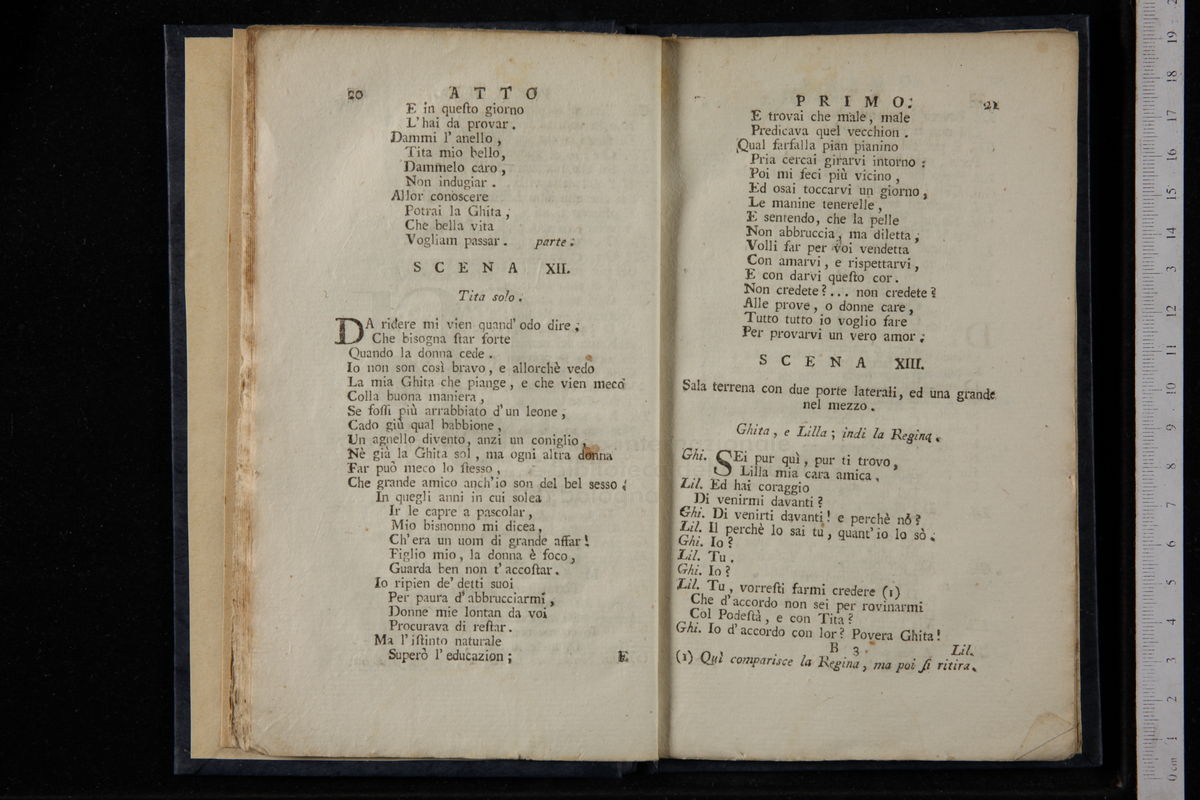 20 ATTO
E in queſto giorno
L'hai da provar.
Dammi l'anello,
Tita mio bello,
Dammelo caro,
Non indugiar.
Allor conoscere
Potrai la Ghita,
Che bella vita
Vogliam passar. parte.
SCENA XII.
Tita solo.
DA ridere mi vien quand' odo dire;
Che bisogna ſtar forte
Quando la donna cede.
Io non son così bravo, e allorchè vedo
La mia Ghita che piange, e che vien meco
Colla buona maniera,
Se foſſi più arrabbiato d'un leone,
Cado giù qual babbione,
Un agnello divento, anzi un coniglio,
Nè già la Ghita sol, ma ogni altra donna
Far può meco lo ſtesso,
Che grande amico anch'io son del bel sesso.
In quegli anni in cui solea
Ir le capre a pascolar,
Mio bisnonno mi dicea,
Ch'era un uom di grande affar!
Figlio mio, la donna è foco,
Guarda ben non t'accoſtar.
Io ripien de' detti suoi
Per paura d'abbrucciarmi,
Donne mie lontan da voi
Procurava di reſtar.
Ma l'iſtinto naturale
Superò l'educazion;
E
PRIMO. 21
E trovai che male, male
Predicava quel vecchion.
Qual farfalla pian pianino
Pria cercai girarvi intorno:
Poi mi feci più vicino,
Ed osai toccarvi un giorno,
Le manine tenerelle,
E sentendo, che la pelle
Non abbruccia, ma diletta,
Volli far per voi vendetta
Con amarvi, e rispettarvi,
E con darvi queſto cor.
Non credete?... non credete?
Alle prove, o donne care,
Tutto tutto io voglio fare
Per provarvi un vero amor.
SCENA XIII.
Sala terrena con due porte laterali, ed una grande
nel mezzo.
Ghita, e Lilla; indi la Regina.
Ghi. SEi pur quì, pur ti trovo,
Lilla mia cara amica.
Lil. Ed hai coraggio
Di venirmi davanti?
Ghi. Di venirti davanti! e perchè nò?
Lil. Il perchè lo sai tu, quant'io lo sò.
Ghi. Io?
Lil. Tu.
Ghi. Io?
Lil. Tu, vorreſti farmi credere (1)
Che d'accordo non sei per rovinarmi
Col Podeſtà, e con Tita?
Ghi. Io d'accordo con lor? Povera Ghita!
B 3 Lil.
(1) Quì comparisce la Regina, ma poi ſi ritira.
0 cm 1 2 3 4 5 6 7 8 9 10 11 12 13 14 15 16 17 18 19 2